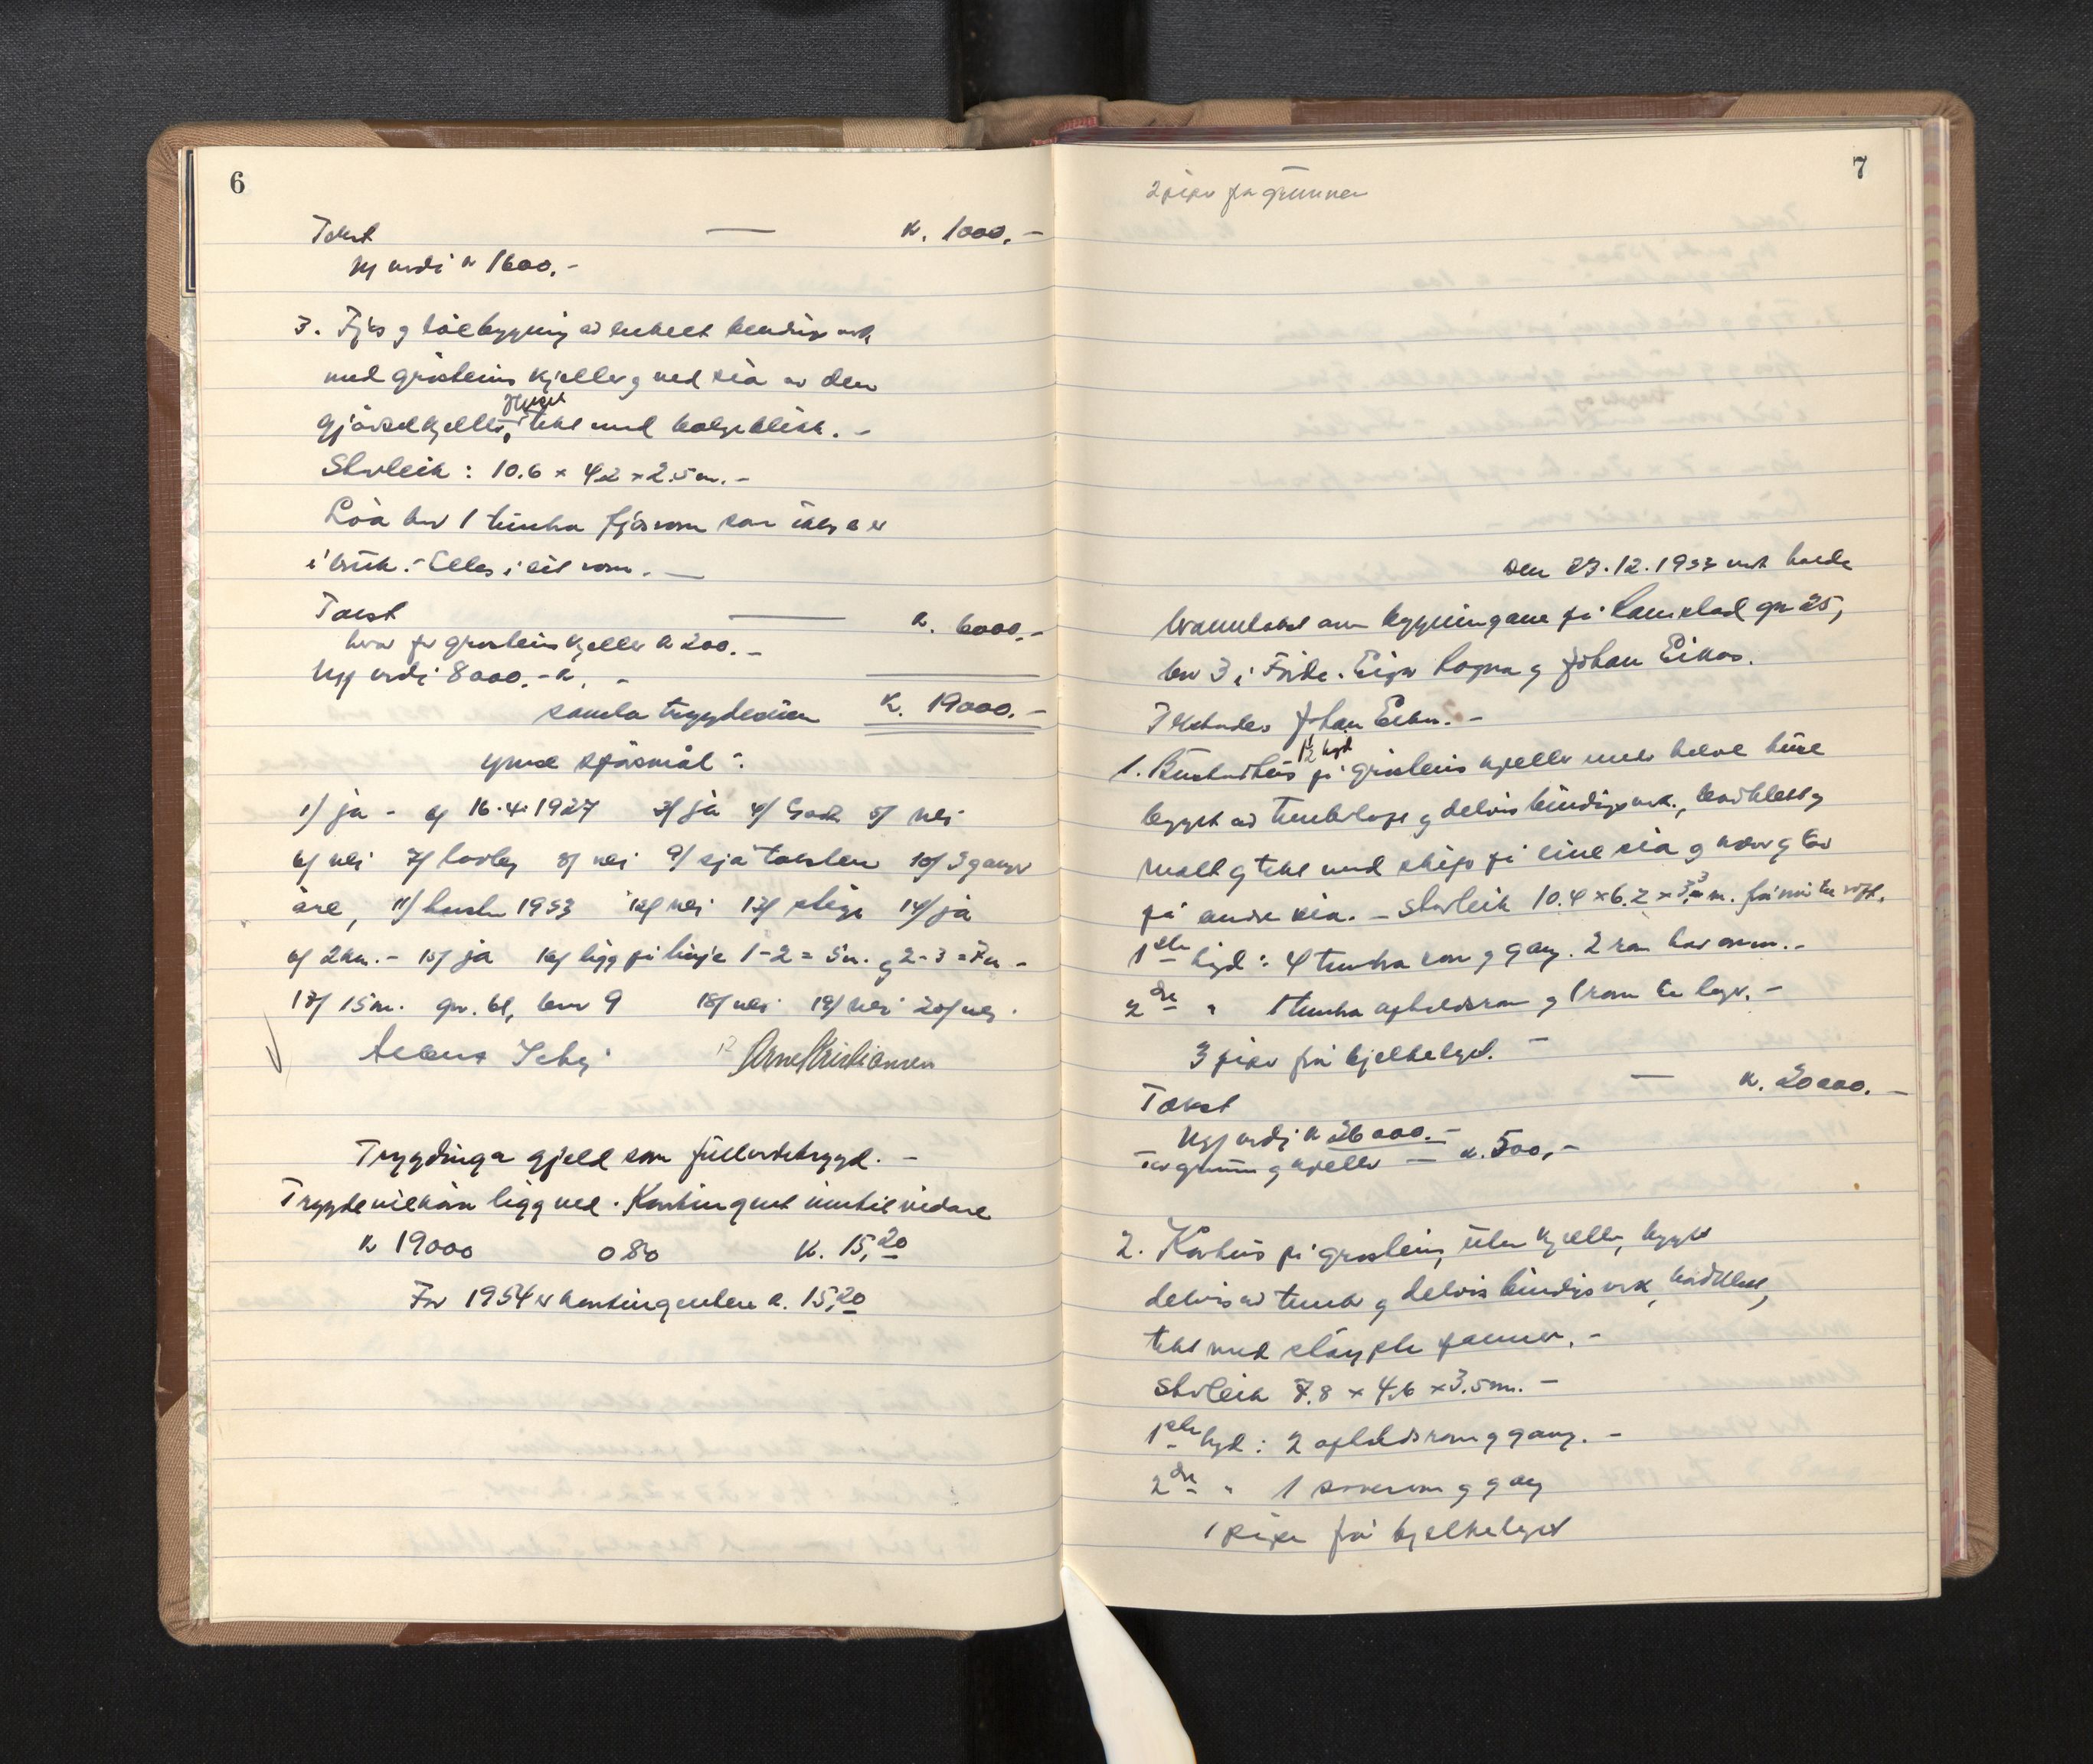 6
Takst — k. 1000.-
Ny verdi k 1600.-
3. Fjøs og løebygning av enkelt bindingsverk
med gråsteins kjeller og ved sia av den
gjødselkjeller, tekt med bølgeblikk. -
Storleik: 10.6 x 4.2 x 2.5 m. -
Löa har 1 timbra fjösrom som ikkje er
i bruk. - Elles i eit rom. —
Takst — k. 6000.-
herav for gråsteinskjeller k 200. -
Ny verdi 8000.- k. -
samla trygdesum k. 19000.-
ymse spörsmål:
1) ja - av 16.4.1927 3) ja 4) Godt 5) nei
6) nei 7) lovleg 8) nei 9) sjå taksten 10) 3 ganger
året, 11) hausten 1953 12) nei 13) stige 14) ja
av 2 km. - 15) ja 16) ligg på linje 1-2 = 5 m. og 2-3 = 7 m -
17) 15 m. gnr. 61, bnr 9 18) nei 19) nei 20) nei.
Arne Kristiansen
Trygdinga gjeld som fullverdetrygd. -
Trygdevilkåra ligg ved. Kontingent inntil vidare
k 19000 0.80 k. 15,20
For 1954 er kontingenten k. 15,20
7
2 piper fra grunnen
Den 23.12.1953 vart halde
branntakst over bygningane på Ramstad gnr 25,
bnr 3 i Förde. Eigar Ragna og Johan Eikås.
Tilstades Johan Eikås. -
1 1/2 högd
1. Bustadhus på gråsteins kjeller under halve huse
bygt av timbrlaft og delvis bindingsverk, bordkledt og
malt og tekt med skifer på eine sia og never og torv
på andre sia. - Storleik 10.4 x 6.2 x 3.3 m. frå mur til röst.
1ste högd: 4 timbra rom og gang. 2 rom har omn. -
2dre " 1 timbra opholdsrom og 1 rom til lager. -
3 piper frå bjelkelaget. -
Takst — k. 20000. -
Ny verdi k 26000. -
For grunn og kjeller — k. 500,-
2. Kårhus på gråstein, uten kjeller, bygt
delvis av timber og delvis bindingsverk, bordkledt,
tekt med støypte panner. -
Storleik 7.8 x 4.6 x 3.5 m. -
1ste högd: 2 opholdsrom og gang. -
2dre " 1 soverom og gang
1 pipe frå bjelkelaget